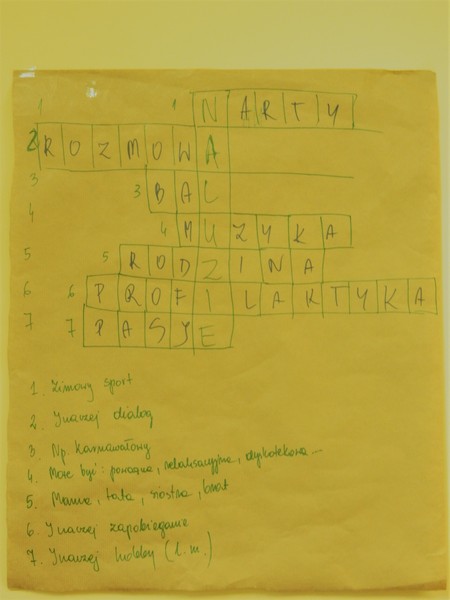 1 1 NARTY
2 ROZMOWA
3 3 BAL
4 4 MUZYKA
5 5 RODZINA
6 6 PROFILAKTYKA
7 7 PASJE
1. Zimowy sport
2. Inaczej dialog
3. Np. karnawałowy
4. Może być: relaksacyjna, dyskotekowa...
5. Mama, tata, siostra, brat
6. Inaczej zapobieganie
7. Inaczej hobby (l.m.)